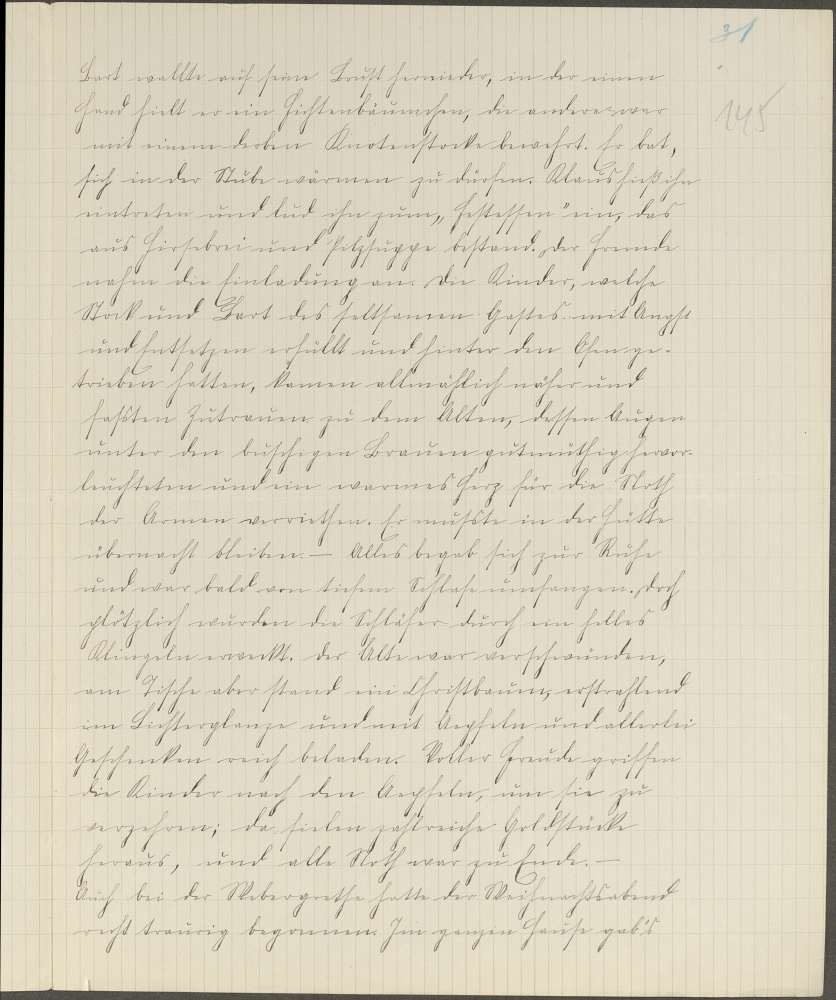 31
145
Bart wallte auf seine Brust hernieder, in der einen
Hand hielt er ein Fichtenbäumchen, die andere war
mit einem derben Knotenstocke bewehrt. Er bat,
sich in der Stube wärmen zu dürfen. Klaus hieß ihn
eintreten und lud ihn zum „Festessen" ein, das
aus Hirsebrei und Pilzsuppe bestand. Der Fremde
nahm die Einladung an. Die Kinder, welche
Stock und Bart des seltsamen Gastes mit Angst
und Entsetzen erfüllt und hinter den Ofen ge-
trieben hatten, kamen allmählich näher und
faßten Zutrauen zu dem Alten, dessen Augen
unter den buschigen Brauen gutmüthig hervor-
leuchteten und ein warmes Herz für die Noth
der Armen verriethen. Er mußte in der Hütte
übernacht bleiben. — Alles begab sich zur Ruhe
und war bald von tiefem Schlafe umfangen. Doch
plötzlich wurden die Schläfer durch ein helles
Klingeln erweckt. Der Alte war verschwunden,
am Tische aber stand ein Christbaum, erstrahlend
im Lichterglanze und mit Aepfeln und allerlei
Geschenken reich beladen. Voller Freude griffen
die Kinder nach den Aepfeln, um sie zu
verzehren; da fielen zahlreiche Goldstücke
heraus, und alle Noth war zu Ende. —
Auch bei der Webergrethe hatte der Weihnachtsabend
recht traurig begonnen. Im ganzen Hause gab's